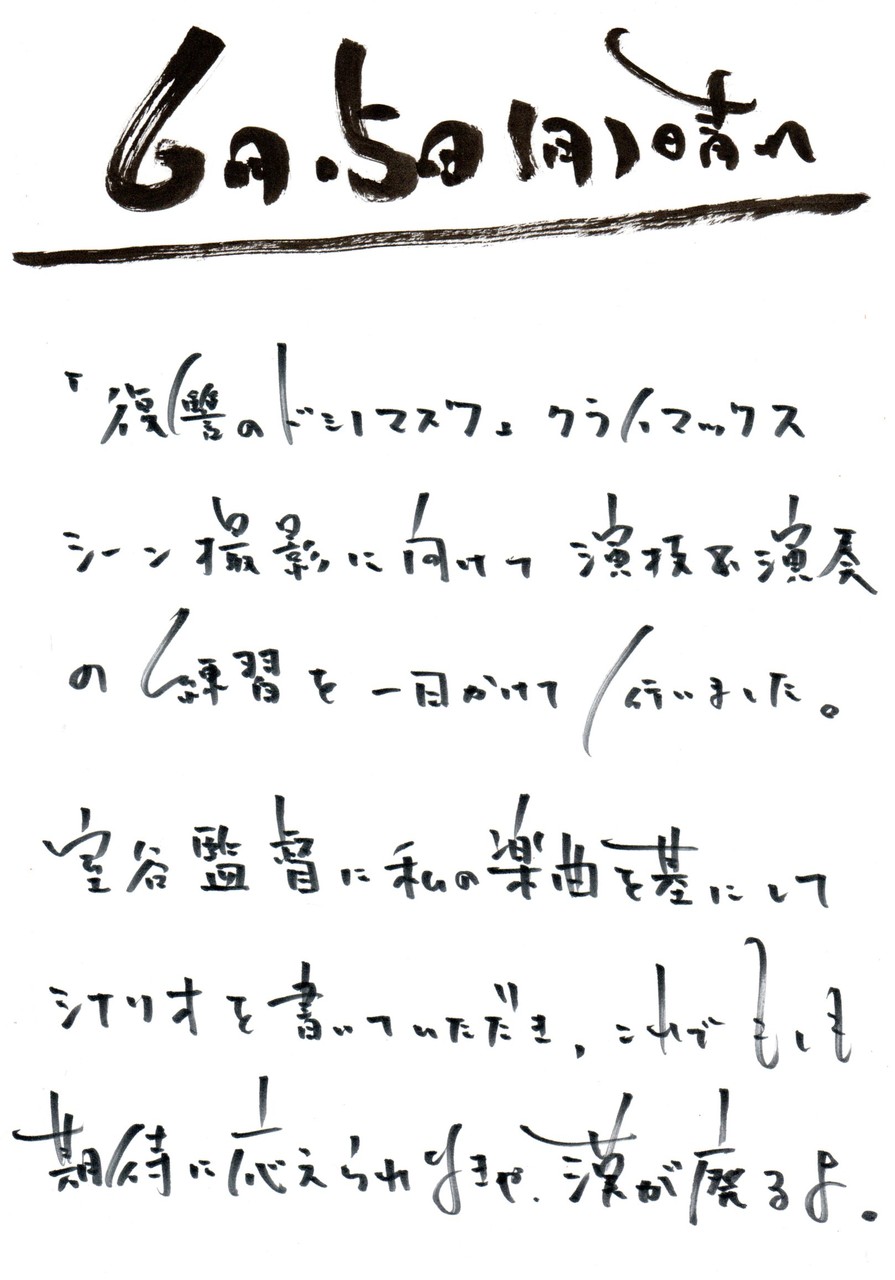 6月.5日(月)晴れ
『復讐のドミノマスク』クライマックス
シーン撮影に向けて 演技&演奏
の練習を一日かけて行いました。
室谷監督に私の楽曲を基にして
シナリオを書いていただき、これでもしも
期待に応えられなきゃ、漢が廃るよ。